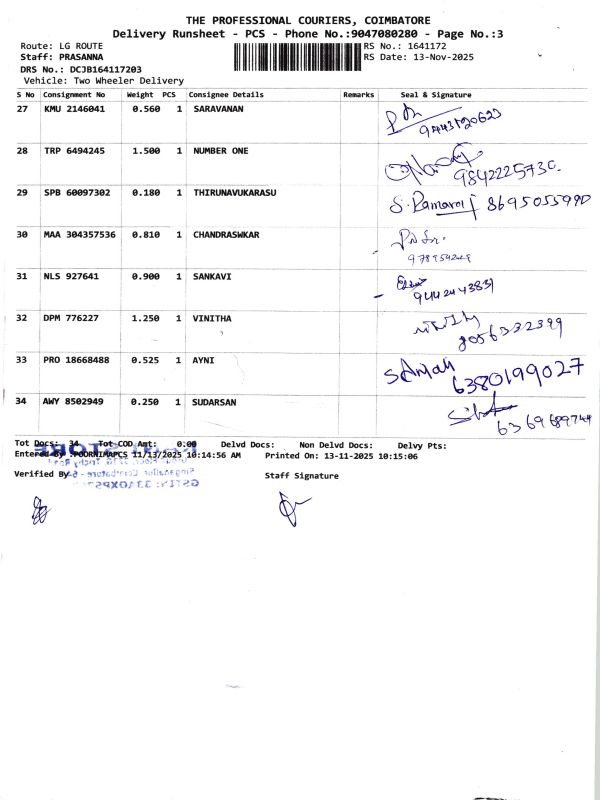 THE PROFESSIONAL COURIERS, COIMBATORE
Delivery Runsheet - PCS - Phone No.:9047080280 - Page No.:3
Route: LG ROUTE RS No.: 1641172
Staff: PRASANNA RS Date: 13-Nov-2025
DRS No.: DCJB164117203
Vehicle: Two Wheeler Delivery
S No Consignment No Weight PCS Consignee Details Remarks Seal & Signature
27 KMU 2146041 0.560 1 SARAVANAN
28 TRP 6494245 1.500 1 NUMBER ONE
9842225730.
29 SPB 60097302 0.180 1 THIRUNAVUKARASU S. Ramaraj 8695055990
30 MAA 304357536 0.810 1 CHANDRASWKAR
31 NLS 927641 0.900 1 SANKAVI
9442443831
32 DPM 776227 1.250 1 VINITHA
8056332399
33 PRO 18668488 0.525 1 AYNI
6380199027
34 AWY 8502949 0.250 1 SUDARSAN
6369689744
Tot Docs: 34 Tot COD Amt: 0.00 Delvd Docs: Non Delvd Docs: Delvy Pts:
Entered By :POORNIMAPCS 11/13/2025 10:14:56 AM Printed On: 13-11-2025 10:15:06
Verified By Staff Signature